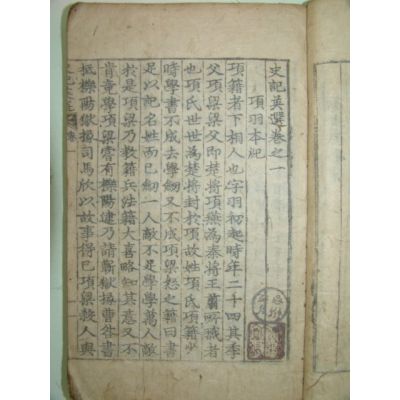 史記英選卷之一
項羽本紀
項籍者下相人也字羽初起時年二十四其季
父項梁梁父即楚將項燕爲秦將王翦所戮者
也項氏世世爲楚將封於項故姓項氏項籍少
時學書不成去學劒又不成項梁怒之籍曰書
足以記名姓而已劒一人敵不足學學萬人敵
於是項梁乃教籍兵法籍大喜略知其意又不
肯竟學項梁嘗有櫟陽逮乃請蘄獄掾曹咎書
抵櫟陽獄掾司馬欣以故事得已項梁殺人與